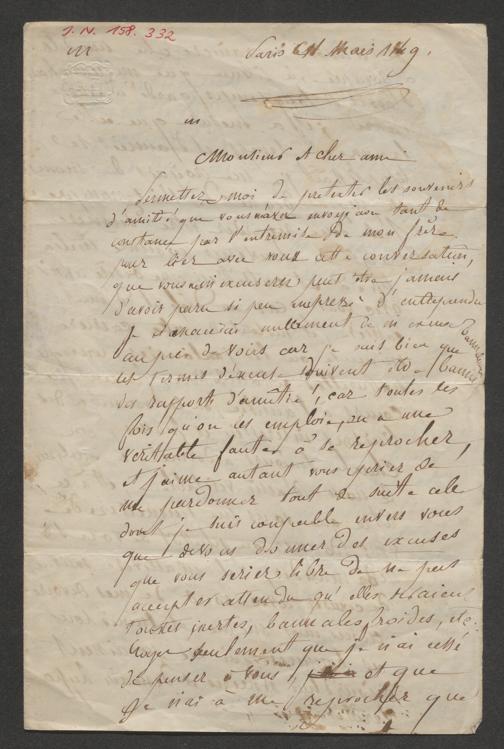 J. N. 158.332
Paris 11 Mars 1849.
Monsieur et cher ami
Permettez moi de prétexter les souvenirs
d'amitié que vous m'avez envoyé avec tant de
constance par l'entremise de mon frère
pour lier avec vous cette conversation,
que vous ne m'excuserez peut être jamais
d'avoir paru si peu empressé d'entreprendre
Je nullement de m'excuser
auprès de vous car je sais bien que
les termes d'excuse doivent être bannis
des rapports d'amitié, car toutes les
fois qu'on les emploie, on a une
véritable faute à se reprocher,
et j'aime autant vous prier de
me pardonner tout de suite celle
dont je suis coupable envers vous
que de vous donner des excuses
que vous seriez libre de ne pas
accepter attendu qu'elles seraient
toutes inertes, bannales, froides, etc.
Croyez seulement que je n'ai cessé
de penser à vous, et que
je n'ai à me reprocher que